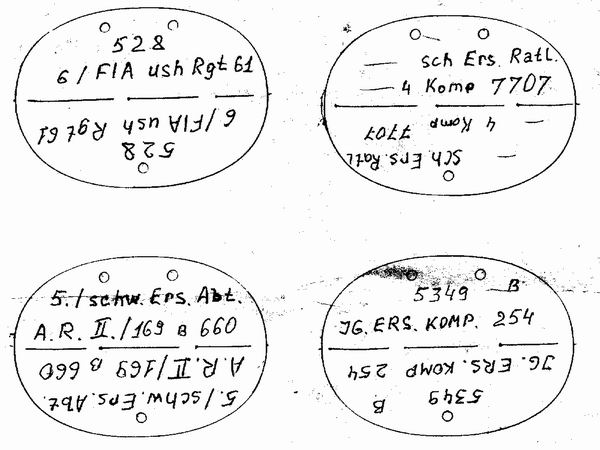 528
6/FlA ush Rgt 61
6/FlA ush Rgt 61
528
sch Ers. Ratl.
4 Komp 7707
4 Komp 7707
Sch. Ers. Ratl
5./schw. Ers. Abt.
A.R. II./169 B 660
A.R. II/169 B 660
5./schw. Ers. Abt.
5349 B
JG. ERS. KOMP. 254
JG. ERS. KOMP 254
5349 B